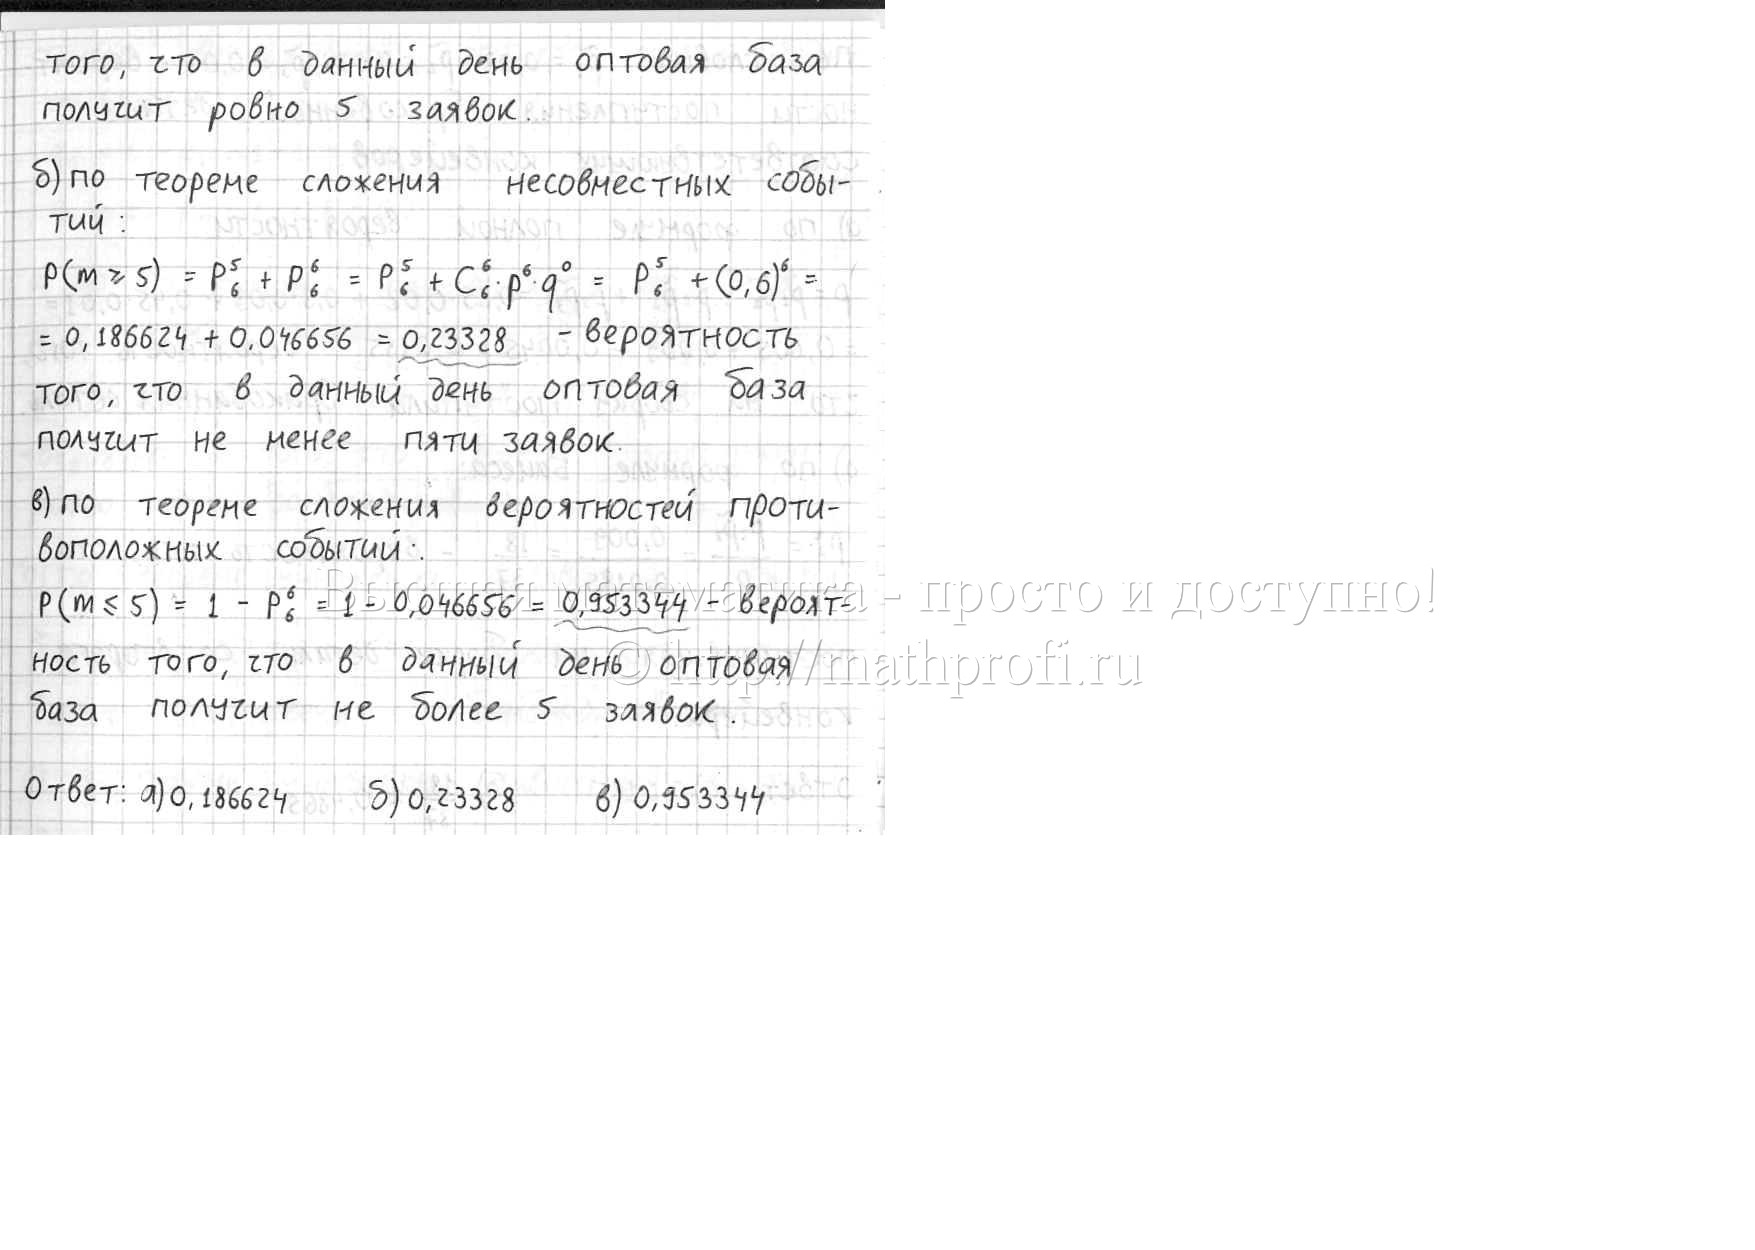 того, что в данный день оптовая база
получит ровно 5 заявок.
б) по теореме сложения несовместных собы-
тий:
P(m ≥ 5) = P₆⁵ + P₆⁶ = P₆⁵ + C₆⁶·p⁶·q⁰ = P₆⁵ + (0,6)⁶ =
= 0,186624 + 0,046656 = 0,23328 - вероятность
того, что в данный день оптовая база
получит не менее пяти заявок.
в) по теореме сложения вероятностей проти-
воположных событий:
P(m ≤ 5) = 1 - P₆⁶ = 1 - 0,046656 = 0,953344 - вероят-
ность того, что в данный день оптовая
база получит не более 5 заявок.
Ответ: а) 0,186624 б) 0,23328 в) 0,953344
Высшая математика - просто и доступно!
© http://mathprofi.ru